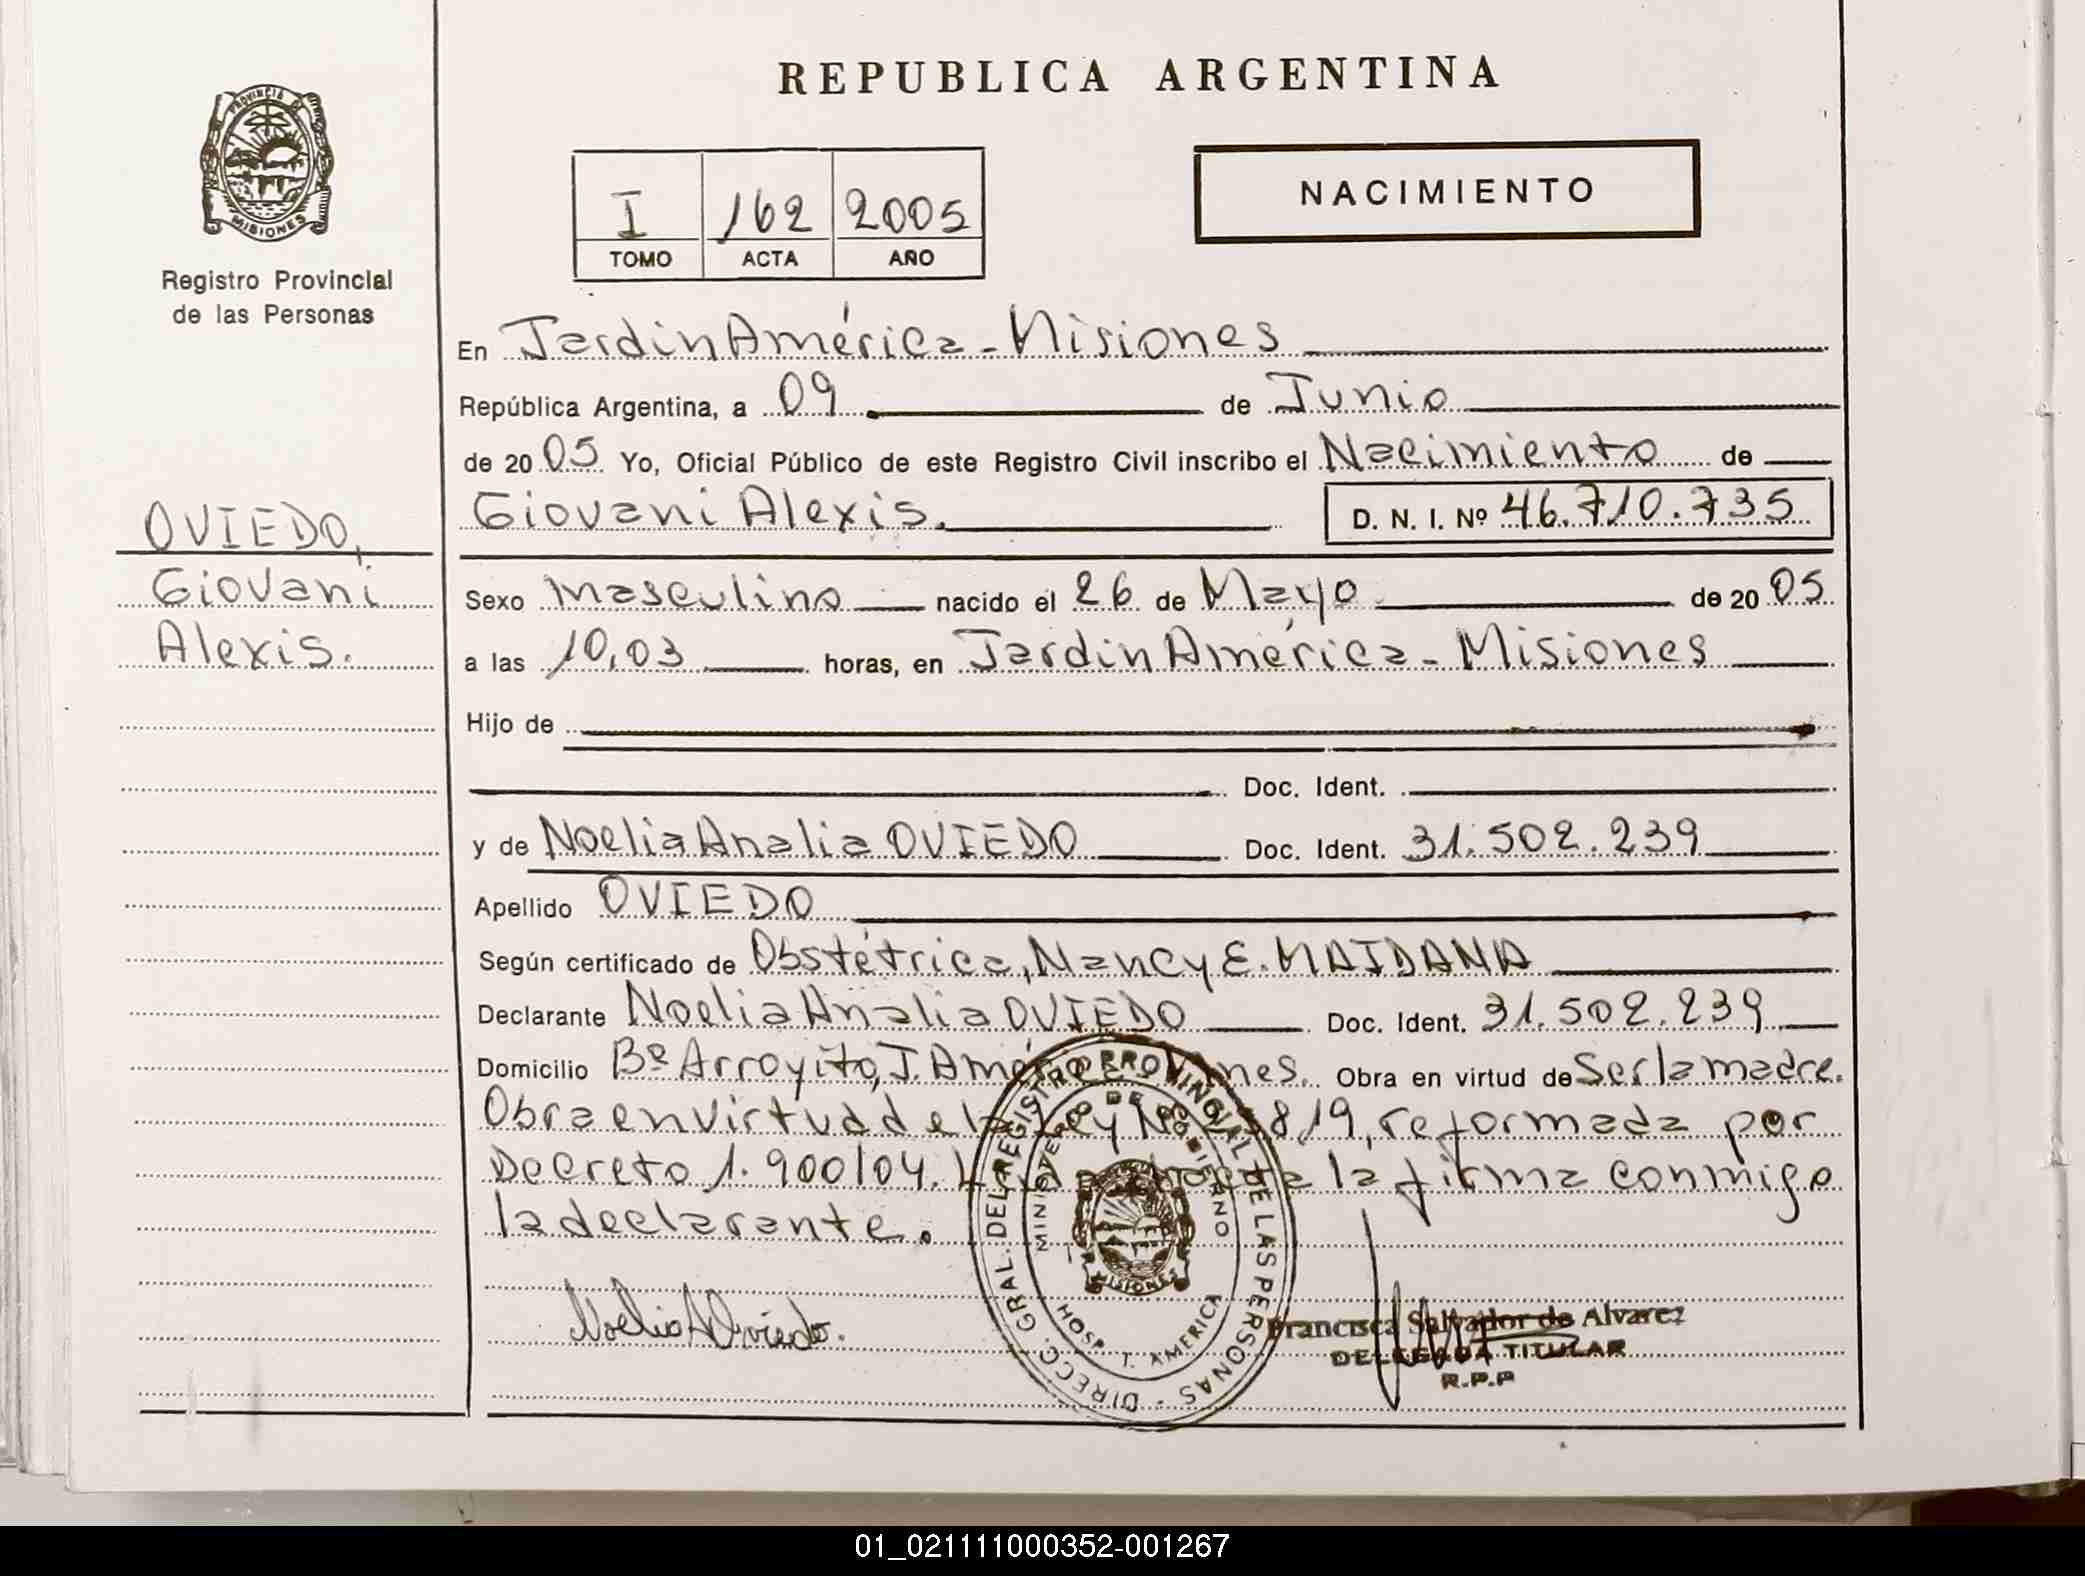 REPUBLICA ARGENTINA
PROVINCIA DE
MISIONES
Registro Provincial
de las Personas
NACIMIENTO
I 162 2005
TOMO ACTA AÑO
En Jardin América - Misiones
República Argentina, a 09 de Junio
de 20 05 Yo, Oficial Público de este Registro Civil inscribo el Nacimiento de
Giovani Alexis. D. N. I. Nº 46.710.735
OVIEDO,
Giovani
Alexis.
Sexo masculino nacido el 26 de Mayo de 20 05
a las 10,03 horas, en Jardin América - Misiones
Hijo de
Doc. Ident.
y de Noelia Analia OVIEDO Doc. Ident. 31.502.239
Apellido OVIEDO
Según certificado de Obstétrica, Nancy E. MAIDANA
Declarante Noelia Analia OVIEDO Doc. Ident. 31.502.239
Domicilio Bº Arroyito, J. América Obra en virtud de Ser la madre.
Obra en virtud de la Ley Nº reformada por
Decreto 1.900/04. la firma conmigo
la declarante.
Noelia A Oviedo.
DIRECC. GRAL. DEL REGISTRO PROVINCIAL DE LAS PERSONAS -
MINISTERIO DE GOBIERNO
MISIONES
HOSP. J. AMERICA
Francisca Salvador de Alvarez
DELEGADA TITULAR
R.P.P
01_021111000352-001267